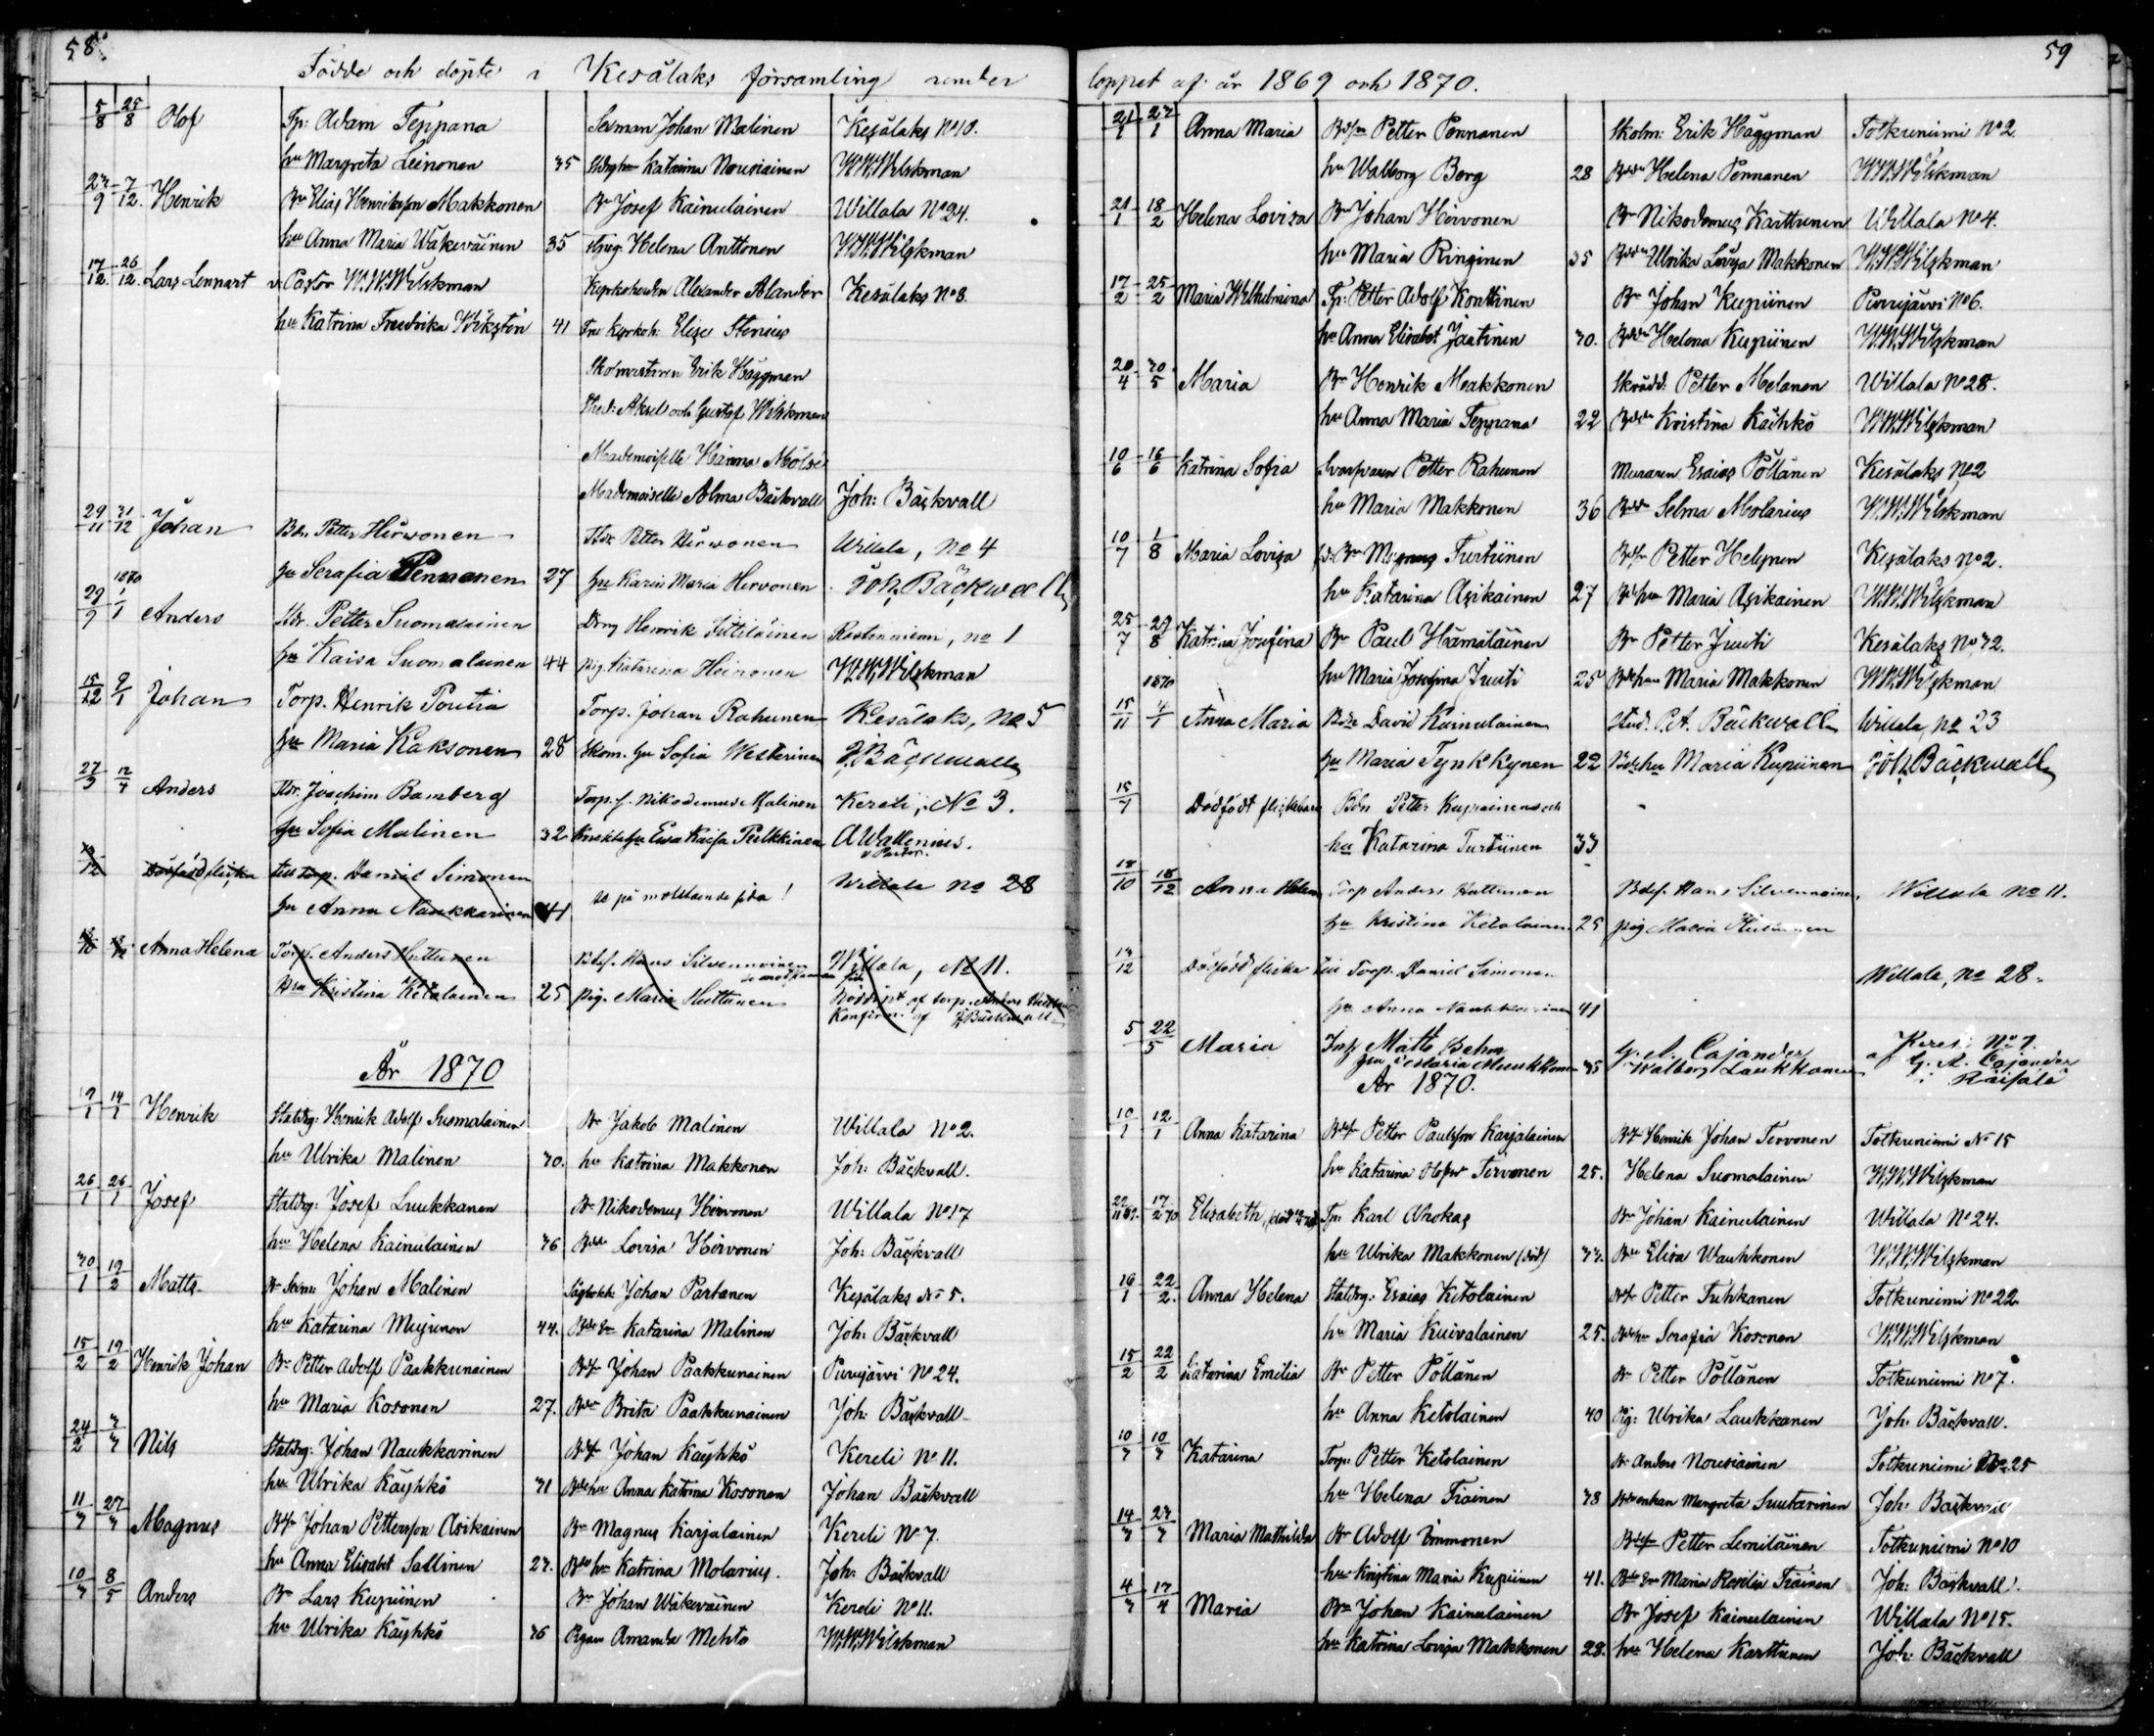 58
Födde och döpte i Kesälaks församling under
5/8 25/8 Olof Tp: Adam Teppana Sexman Johan Malinen Kesälaks No 10.
hu Margreta Leinonen 35 Katarina Nousiainen W.W.Wilskman
23/9 7/12. Henrik Bn Elias Henriksson Makkonen Bn Josef Kainulainen Willala No 24.
hu Anna Maria Wäkeväinen 35 Helena Anttonen W.W.Wilskman
17/12. 26/12. Lars Lennart v. Pastor W.W.Wilskman Kyrkoherden Alexander Alander Kesälaks No 8.
hu Katrina Fredrika Wikstén 41 Fru Kyrkoh: Elise Stenius
Skolmästaren Erik Häggman
Stud: Aksel och Gustaf Wilskman
Mademoiselle Hanna Molse
Mademoiselle Alma Bäckvall Joh: Bäckvall
29/11 31/12 Johan Bdn. Petter Hirwonen Petter Hirwonen Willala, No 4
hu Serafia Pennanen 27 hu Karin Maria Hirvonen Joh. Bäckwall
1870
29/9 1/1 Anders Petter Suomalainen Dreng Henrik Littiläinen Rastinniemi, no 1
hu Kaisa Suomalainen 44 pig. Katarina Heinonen W.W.Wilskman
15/12 9/1 Johan Torp. Henrik Poutia Torp. Johan Rahunen Kesälaks, No 5
hu Maria Kaksonen 28 Skom. hu Sofia Westerinen J. Bäckwall
27/9 Anders Joachim Bamberg Torp. f. Nikodemus Malinen Kereli, No 3.
hu Sofia Malinen 32 Ewa Kaisa Pulkkinen A Wallennius.
v Pastor.
13/12 Dödfödd flicka till torp. Daniel Simonen se på motstående sida! Willala no 28
hu Anna Naukkarinen 41
Anna Helena Torp. Anders Huttunen Bdsf. Hans Silvennoinen Willala, No 11.
Hu Kristina Ketolainen 25 pig. Maria Huttunen Nöddöpt af torp. Anders
Konfirm. af J. Bäckwall
År 1870
12/1 14/1 Henrik Stattdrg: Henrik Adolf Suomalainen Bn Jakob Malinen Willala No 2.
hu Ulrika Malinen 30. hu Katrina Makkonen Joh: Bäckvall.
26/1 26/1 Josef Stattdrg: Josef Luukkanen Bn Nikodemus Hirvonen Willala No 17
hu Helena Kainulainen 36 Lovisa Hirvonen Joh: Bäckvall
30/1 19/2 Matts Johan Malinen Johan Partanen Kesälaks No 5.
hu Katarina Mujunen 44. Katarina Malinen Joh: Bäckvall
15/2 19/2 Henrik Johan Bn Petter Adolf Paakkunainen Johan Paakkunainen Purujärvi No 24.
hu Maria Kosonen 27. Brita Paakkunainen Joh: Bäckvall
24/2 3/3 Nils Stattdrg: Johan Naukkarinen Johan Käyhkö Kereli No 11.
hu Ulrika Käyhkö 31 Anna Katrina Kosonen Johan Bäckvall
11/3 27/3 Magnus Johan Pettersson Asikainen Bn Magnus Karjalainen Kereli No 7.
hu Anna Elisabet Sallinen 23. hu Katrina Molarius. Joh: Bäckvall
10/3 8/5 Anders Bn Lars Kupiinen Bn Johan Wäkeväinen Kereli No 11.
hu Ulrika Käyhkö 36 Pigan Amanda Mehto W.W.Wilskman
59
loppet af år 1869 och 1870.
21/1 23/1 Anna Maria Petter Pennanen Skolm: Erik Häggman Totkuniemi No 2
hu Walborg Borg 28 Helena Pennanen W.W.Wilskman
21/1 18/2 Helena Lovisa Bn Johan Hirvonen Bn Nikodemus Karttunen Willala No 4.
hu Maria Ringinen 35 Ulrika Lovisa Makkonen W.W.Wilskman
17/2 25/2 Maria Wilhelmina Tp: Petter Adolf Konttinen Bn Johan Kupiinen Purujärvi No 6.
hu Anna Elisabet Jaatinen 30. Helena Kupiinen W.W.Wilskman
20/4 30/5 Maria Bn Henrik Makkonen Skrädd: Petter Melanen Willala No 28.
hu Anna Maria Teppana 22 Kristina Käihkö W.W.Wilskman
10/6 16/6 Katrina Sofia Petter Rahunen Muraren Esaias Pöllänen Kesälaks No 2
hu Maria Makkonen 36 Selma Molarius W.W.Wilskman
10/7 1/8 Maria Lovisa Magnus Turtiinen Petter Helynen Kesälaks No 2.
hu Katarina Asikainen 27 Maria Asikainen W.W.Wilskman
25/7 29/8 Katrina Josefina Bn Paul Hämäläinen Bn Petter Juuti Kesälaks No 32.
hu Maria Josefina Juuti 25 Maria Makkonen W.W.Wilskman
1870
15/11 4/1 Anna Maria David Kainulainen Stud. P.A. Bäckwall Willala, no 23
hu Maria Tynkkynen 22 Maria Kupiinen Joh. Bäckwall
Dödfödt flickebarn Bdn Petter Kupiainens och
hu Katarina Turtiinen 33
18/10 18/12 Anna Helena Torp Anders Huttunen Bdsf. Hans Silvennoinen, Willala no 11.
hu Kristina Ketolainen 25 pig Maria Huttunen
13/12 Dödfödd flicka till Torp. Daniel Simonen Willala, no 28.
hu Anna Naukkarinen 41
5 22/5 Maria Torp Matts Behm G. A. Cajander Kereli No 7.
hu Maria Munkkonen 35 Walborg Laukkanen af G. A. Cajander
i Räisälä
År 1870.
10/1 12/1 Anna Katarina Petter Paulsson Karjalainen Henrik Johan Tervonen Totkuniemi No 15
hu Katarina Tervonen 25. Helena Suomalainen W.W.Wilskman
Elisabeth Tp: Karl Ahokas Bn Johan Kainulainen Willala No 24.
hu Ulrika Makkonen (död) 33. Elisa Wauhkonen W.W.Wilskman
16/1 22/2. Anna Helena Stattdrg: Esaias Ketolainen Petter Tuhkanen Totkuniemi No 22
hu Maria Kuivalainen 25. Serafia Kosonen W.W.Wilskman
15/2 22/2 Katarina Emilia Bn Petter Pöllänen Bn Petter Pöllänen Totkuniemi No 7.
hu Anna Ketolainen 40 Pig: Ulrika Laukkanen Joh. Bäckvall.
10/3 10/3 Katarina Torp: Petter Ketolainen Bn Anders Nousiainen Totkuniemi No 25
hu Helena Tiainen 38 Margreta Suutarinen Joh: Bäckvall
14/3 27/3 Maria Mathilda Bn Adolf Immonen Petter Lemiläinen Totkuniemi No 10
hu Kristina Maria Kupiinen 41. Maria Rosilia Tiainen Joh: Bäckvall.
4/3 17/4 Maria Bn Johan Kainulainen Bn Josef Kainulainen Willala No 15.
hu Katrina Lovisa Makkonen 28. hu Helena Karttunen Joh: Bäckvall